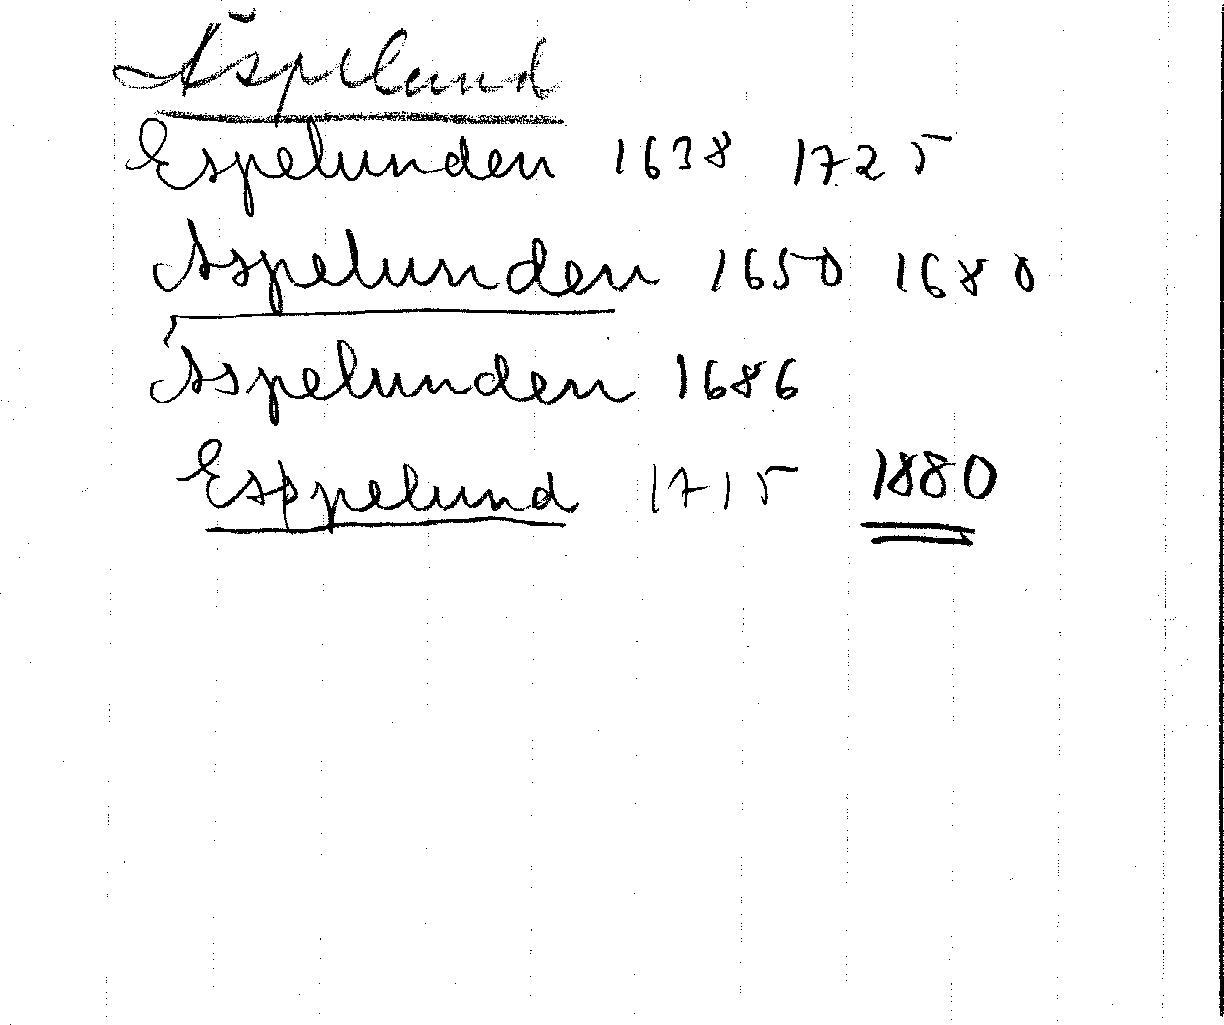 Äspelund
Espelunden 1638 1725
Aspelunden 1650 1680
Äspelunden 1686
Esppelund 1715 1880